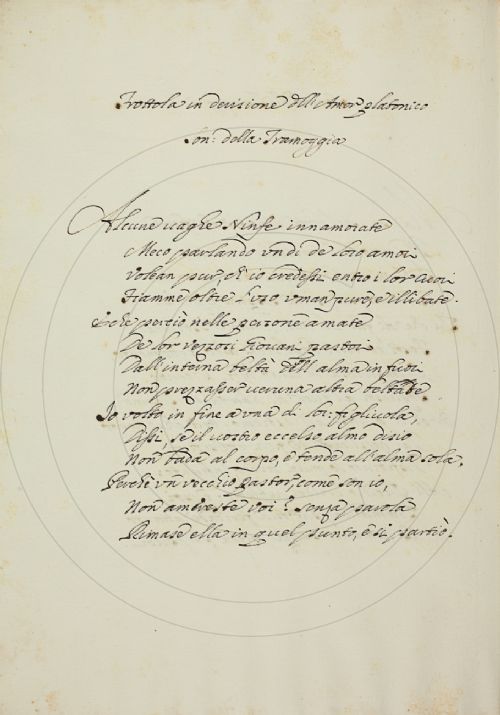 Frottola in derisione dell'Amor platonico
Son: della Tramoggia
Alcune vaghe Ninfe innamorate
Meco parlando un dì de loro amori
Volean pur, ch'io credessi entro i lor cuori
Fiamme oltre l'uso uman pure, e illibate.
E che perciò nelle persone amate
De lor vezzosi Giovani pastori
Dall'interna beltà dell'alma in fuori
Non prezzasser veruna altra beltade
Io volto in fine a una di lor: figliuola,
Dissi, se il vostro eccelso almo disio
Non bada al corpo, e tende all'alma sola.
Perchè un vecchio Pastor, come son io,
Non amereste voi? senza parola
Rimase ella in quel punto, e si partìo.